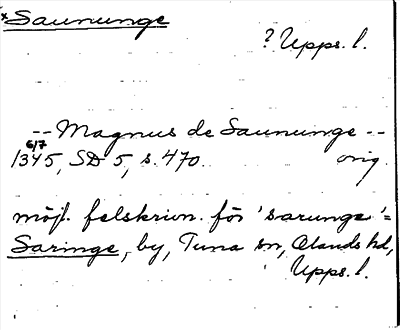 *Saununge
? Upps. l.
-- Magnus de Saununge --
6/7
1345, SD 5, s. 470. orig.
möjl. felskrivn. för 'sarunge' =
Saringe, by, Tuna sn, Olands hd,
Upps. l.